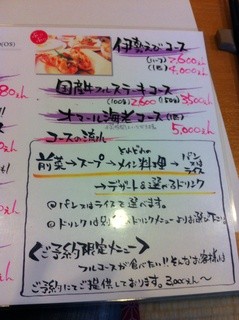 伊勢えびコース
(ハーフ) 2,600えん
(1匹) 4,000えん
国産牛フィレステーキコース
(100g) 2600 (150g) 3500えん
オマール海老コース
(1匹) 5,000えん
コースの流れ
前菜→スープ→メイン料理→パン
ライス
→デザート&選べるドリンク
◎パン又はライスで選べます。
◎ドリンクは別紙ドリンクメニューよりお選び下さい
〈ご予約限定メニュー〉
フルコースが食べたい!! そんなお客様には
ご予約にてご提供しております。3,000えん〜